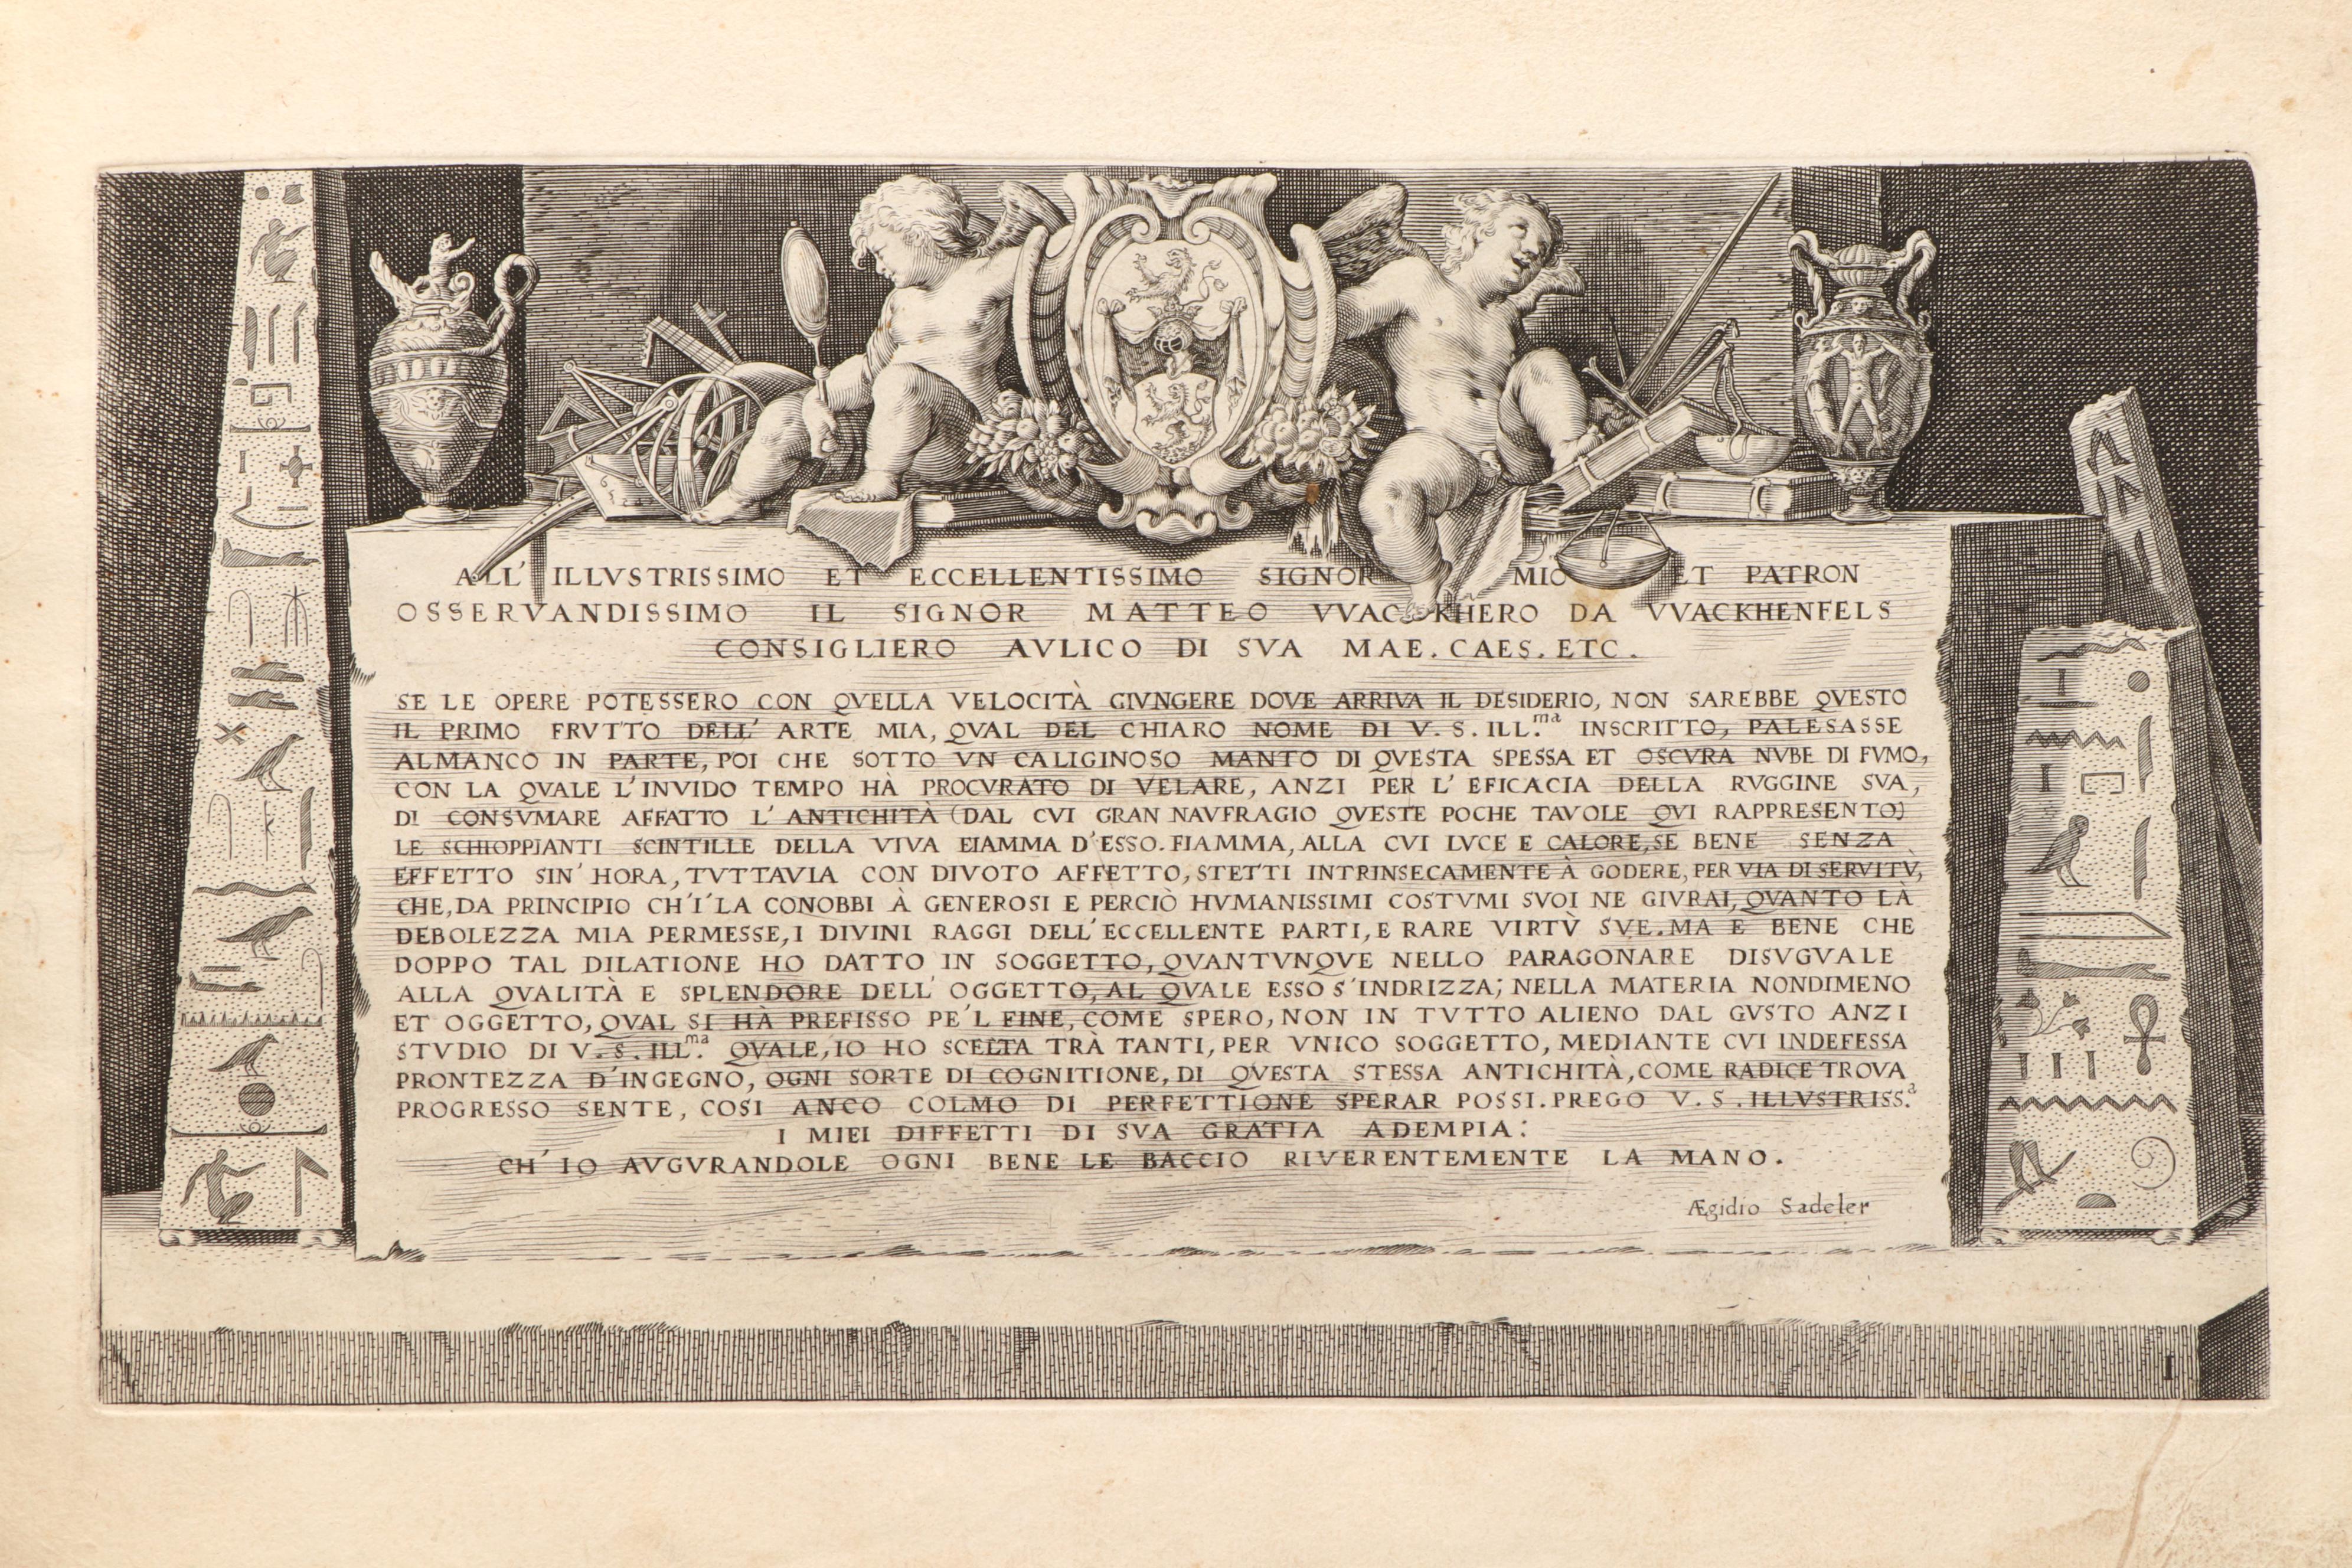 ALL' ILLVSTRISSIMO ET ECCELLENTISSIMO SIGNOR MIO ET PATRON
OSSERVANDISSIMO IL SIGNOR MATTEO VVACKHERO DA VVACKHENFELS
CONSIGLIERO AVLICO DI SVA MAE. CAES. ETC.
SE LE OPERE POTESSERO CON QVELLA VELOCITÀ GIVNGERE DOVE ARRIVA IL DESIDERIO, NON SAREBBE QVESTO
IL PRIMO FRVTTO DELL' ARTE MIA, QVAL DEL CHIARO NOME DI V. S. ILL.ma INSCRITTO, PALESASSE
ALMANCO IN PARTE, POI CHE SOTTO VN CALIGINOSO MANTO DI QVESTA SPESSA ET OSCVRA NVBE DI FVMO,
CON LA QVALE L'INVIDO TEMPO HÀ PROCVRATO DI VELARE, ANZI PER L'EFICACIA DELLA RVGGINE SVA,
DI CONSVMARE AFFATTO L'ANTICHITÀ (DAL CVI GRAN NAVFRAGIO QVESTE POCHE TAVOLE QVI RAPPRESENTO)
LE SCHIOPPIANTI SCINTILLE DELLA VIVA FIAMMA D'ESSO. FIAMMA, ALLA CVI LVCE E CALORE, SE BENE SENZA
EFFETTO SIN' HORA, TVTTAVIA CON DIVOTO AFFETTO, STETTI INTRINSECAMENTE À GODERE, PER VIA DI SERVITV,
CHE, DA PRINCIPIO CH'I' LA CONOBBI À GENEROSI E PERCIÒ HVMANISSIMI COSTVMI SVOI NE GIVRAI, QVANTO LÀ
DEBOLEZZA MIA PERMESSE, I DIVINI RAGGI DELL'ECCELLENTE PARTI, E RARE VIRTÙ SVE. MA E BENE CHE
DOPPO TAL DILATIONE HO DATTO IN SOGGETTO, QVANTVNQVE NELLO PARAGONARE DISVGVALE
ALLA QVALITÀ E SPLENDORE DELL' OGGETTO, AL QVALE ESSO S'INDRIZZA; NELLA MATERIA NONDIMENO
ET OGGETTO, QVAL SI HÀ PREFISSO PE'L FINE, COME SPERO, NON IN TVTTO ALIENO DAL GVSTO ANZI
STVDIO DI V. S. ILL.ma QVALE, IO HO SCELTA TRÀ TANTI, PER VNICO SOGGETTO, MEDIANTE CVI INDEFESSA
PRONTEZZA D'INGEGNO, OGNI SORTE DI COGNITIONE, DI QVESTA STESSA ANTICHITÀ, COME RADICE TROVA
PROGRESSO SENTE, COSI ANCO COLMO DI PERFETTIONE SPERAR POSSI. PREGO V. S. ILLVSTRISS.a
I MIEI DIFFETTI DI SVA GRATIA ADEMPIA:
CH' IO AVGVRANDOLE OGNI BENE LE BACCIO RIVERENTEMENTE LA MANO.
Ægidio Sadeler
I